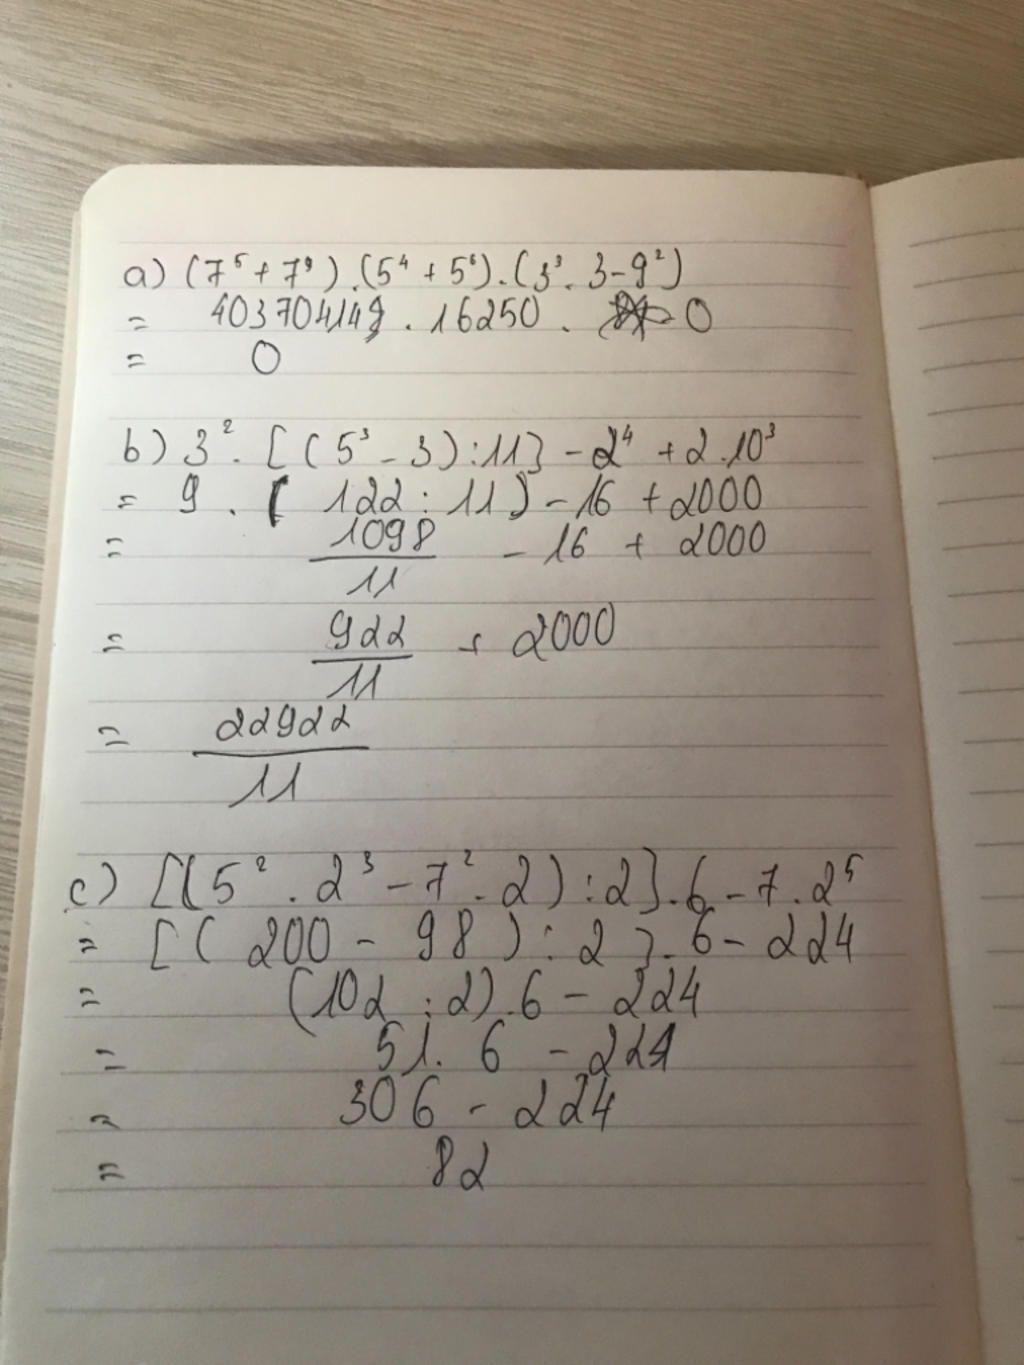 a) (7⁵ + 7⁹).(5⁴ + 5⁶).(3³. 3-9²)
= 403704149 . 16250 . 0
= 0
b) 3². [(5³ - 3):11] - 2⁴ + 2.10³
= 9 . ( 122 : 11) - 16 + 2000
= 1098/11 - 16 + 2000
= 922/11 + 2000
= 22922/11
c) [(5² . 2³ - 7² . 2) : 2]. 6 - 7 . 2⁵
= [( 200 - 98 ) : 2 ]. 6 - 224
= (102 : 2) . 6 - 224
= 51. 6 - 224
= 306 - 224
= 82